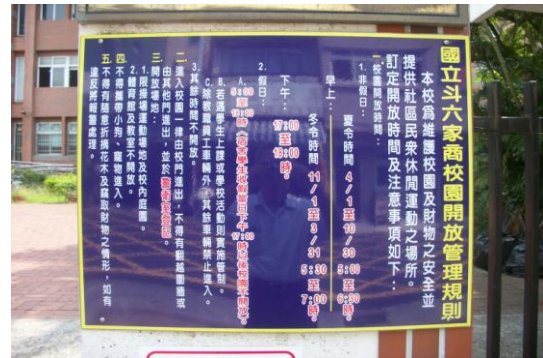 國立斗六家商校園開放管理規則
本校為維護校園及財物之安全並
提供社區民眾休閒運動之場所。
訂定開放時間及注意事項如下：
一、校園開放時間：
1.非假日：
早上：
夏令時間 4/1至10/30 5:00至6:30時。
冬令時間 11/1至3/31 5:30至7:00時。
下午：17:00至19:00時。
2.假日：
A.5:00至19:00時（宿舍學生收假當日下午17:00時以後校園不開放）。
B.若遇學生上課或學校活動則實施管制。
C.除教職員工車輛外，其餘車輛禁止進入。
3.其餘時間不開放。
二、進入校園一律由校門進出，不得有翻越圍牆或
由其他門進出，並於警衛室登記。
三、開放場地：
1.限操場運動場地及校內庭園。
2.體育館及教室不開放。
四、不得攜帶小狗、寵物進入。
五、不得有隨意折摘花木及竊取財物之情形，如有
違反將報警處理。